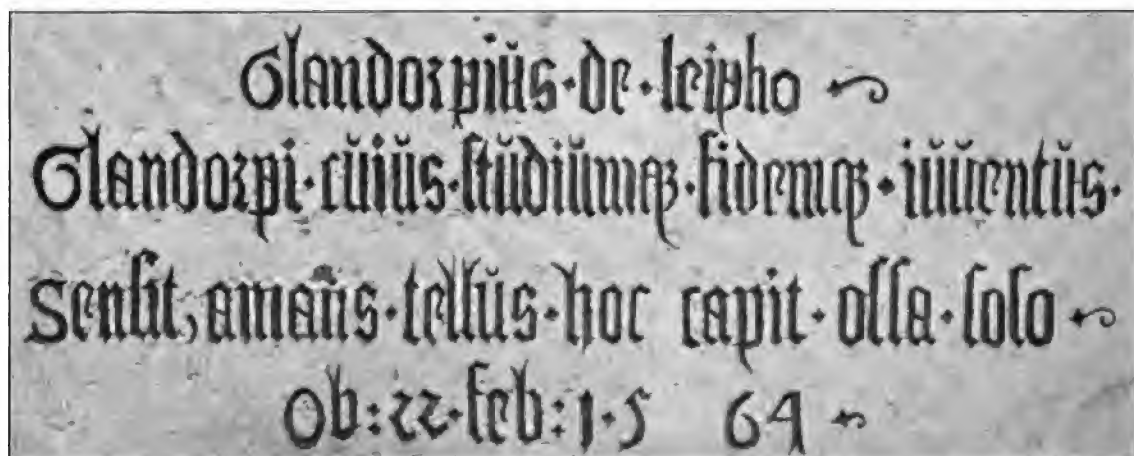 Glandorpiŭs · de · seipho
Glandorpi · cŭiŭs · stŭdiŭmqꝫ · fidemqꝫ · iŭŭentŭs ·
Sensit, amans · tellŭs · hoc capit · ossa · solo
Ob : 22 · feb : 1 · 5 64